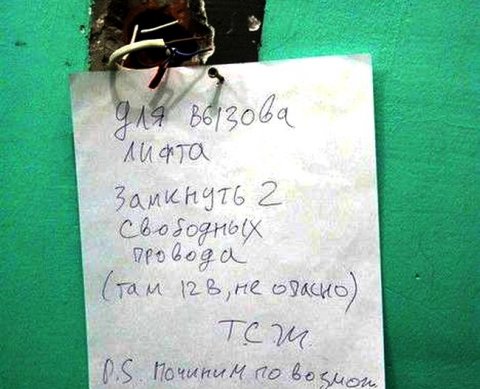 для вызова
лифта
Замкнуть 2
свободных
провода
(там 12В, не опасно)
ТСЖ.
P.S. Починим по возмож